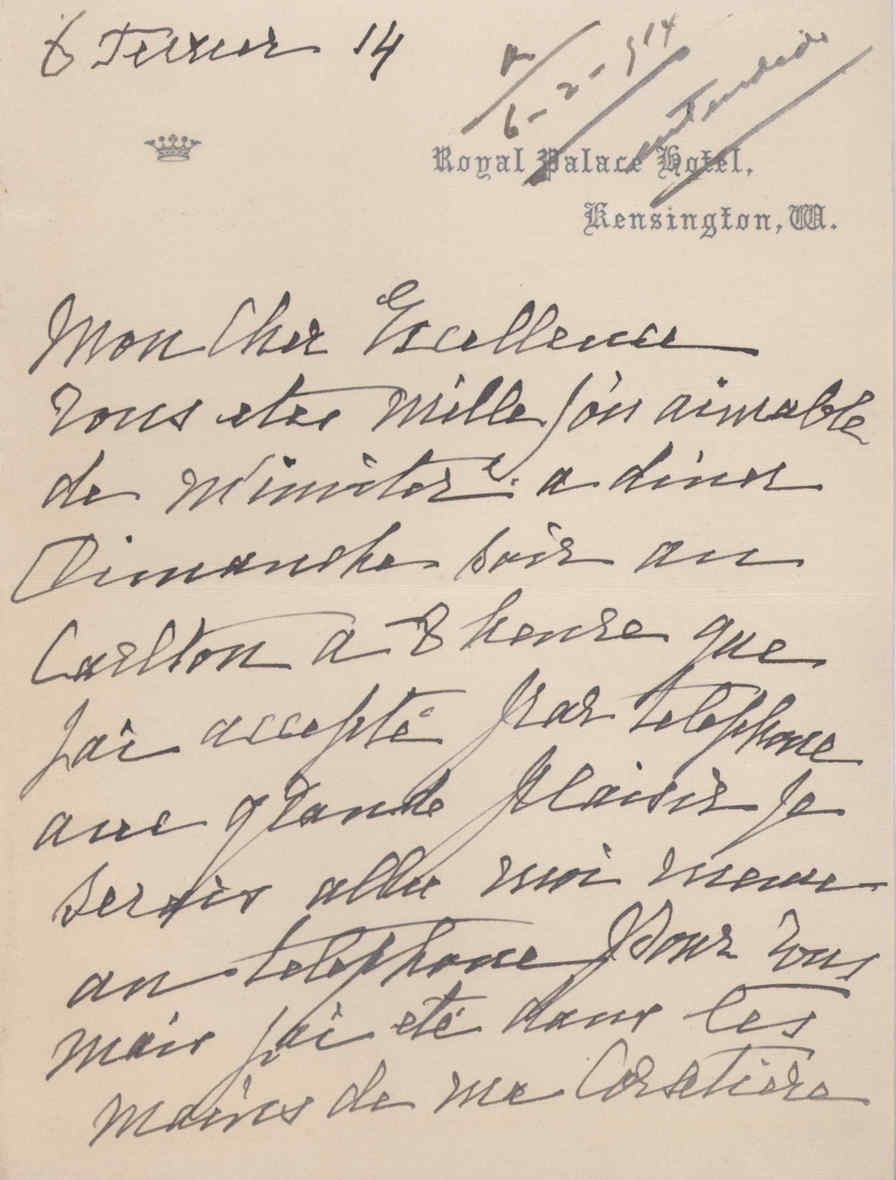 6 Fevrier 14
6-2-914
Royal Palace Hotel,
Kensington, W.
Mon Cher Excellence
Vous etes mille fois aimable
de m'inviter a diner
Dimanche soir au
Carlton a 8 heure que
j'ai accepté par telephone
avec grande plaisir je
serais allee moi meme
au telephone pour vous
mais j'ai eté dans les
mains de ma Corsetiere